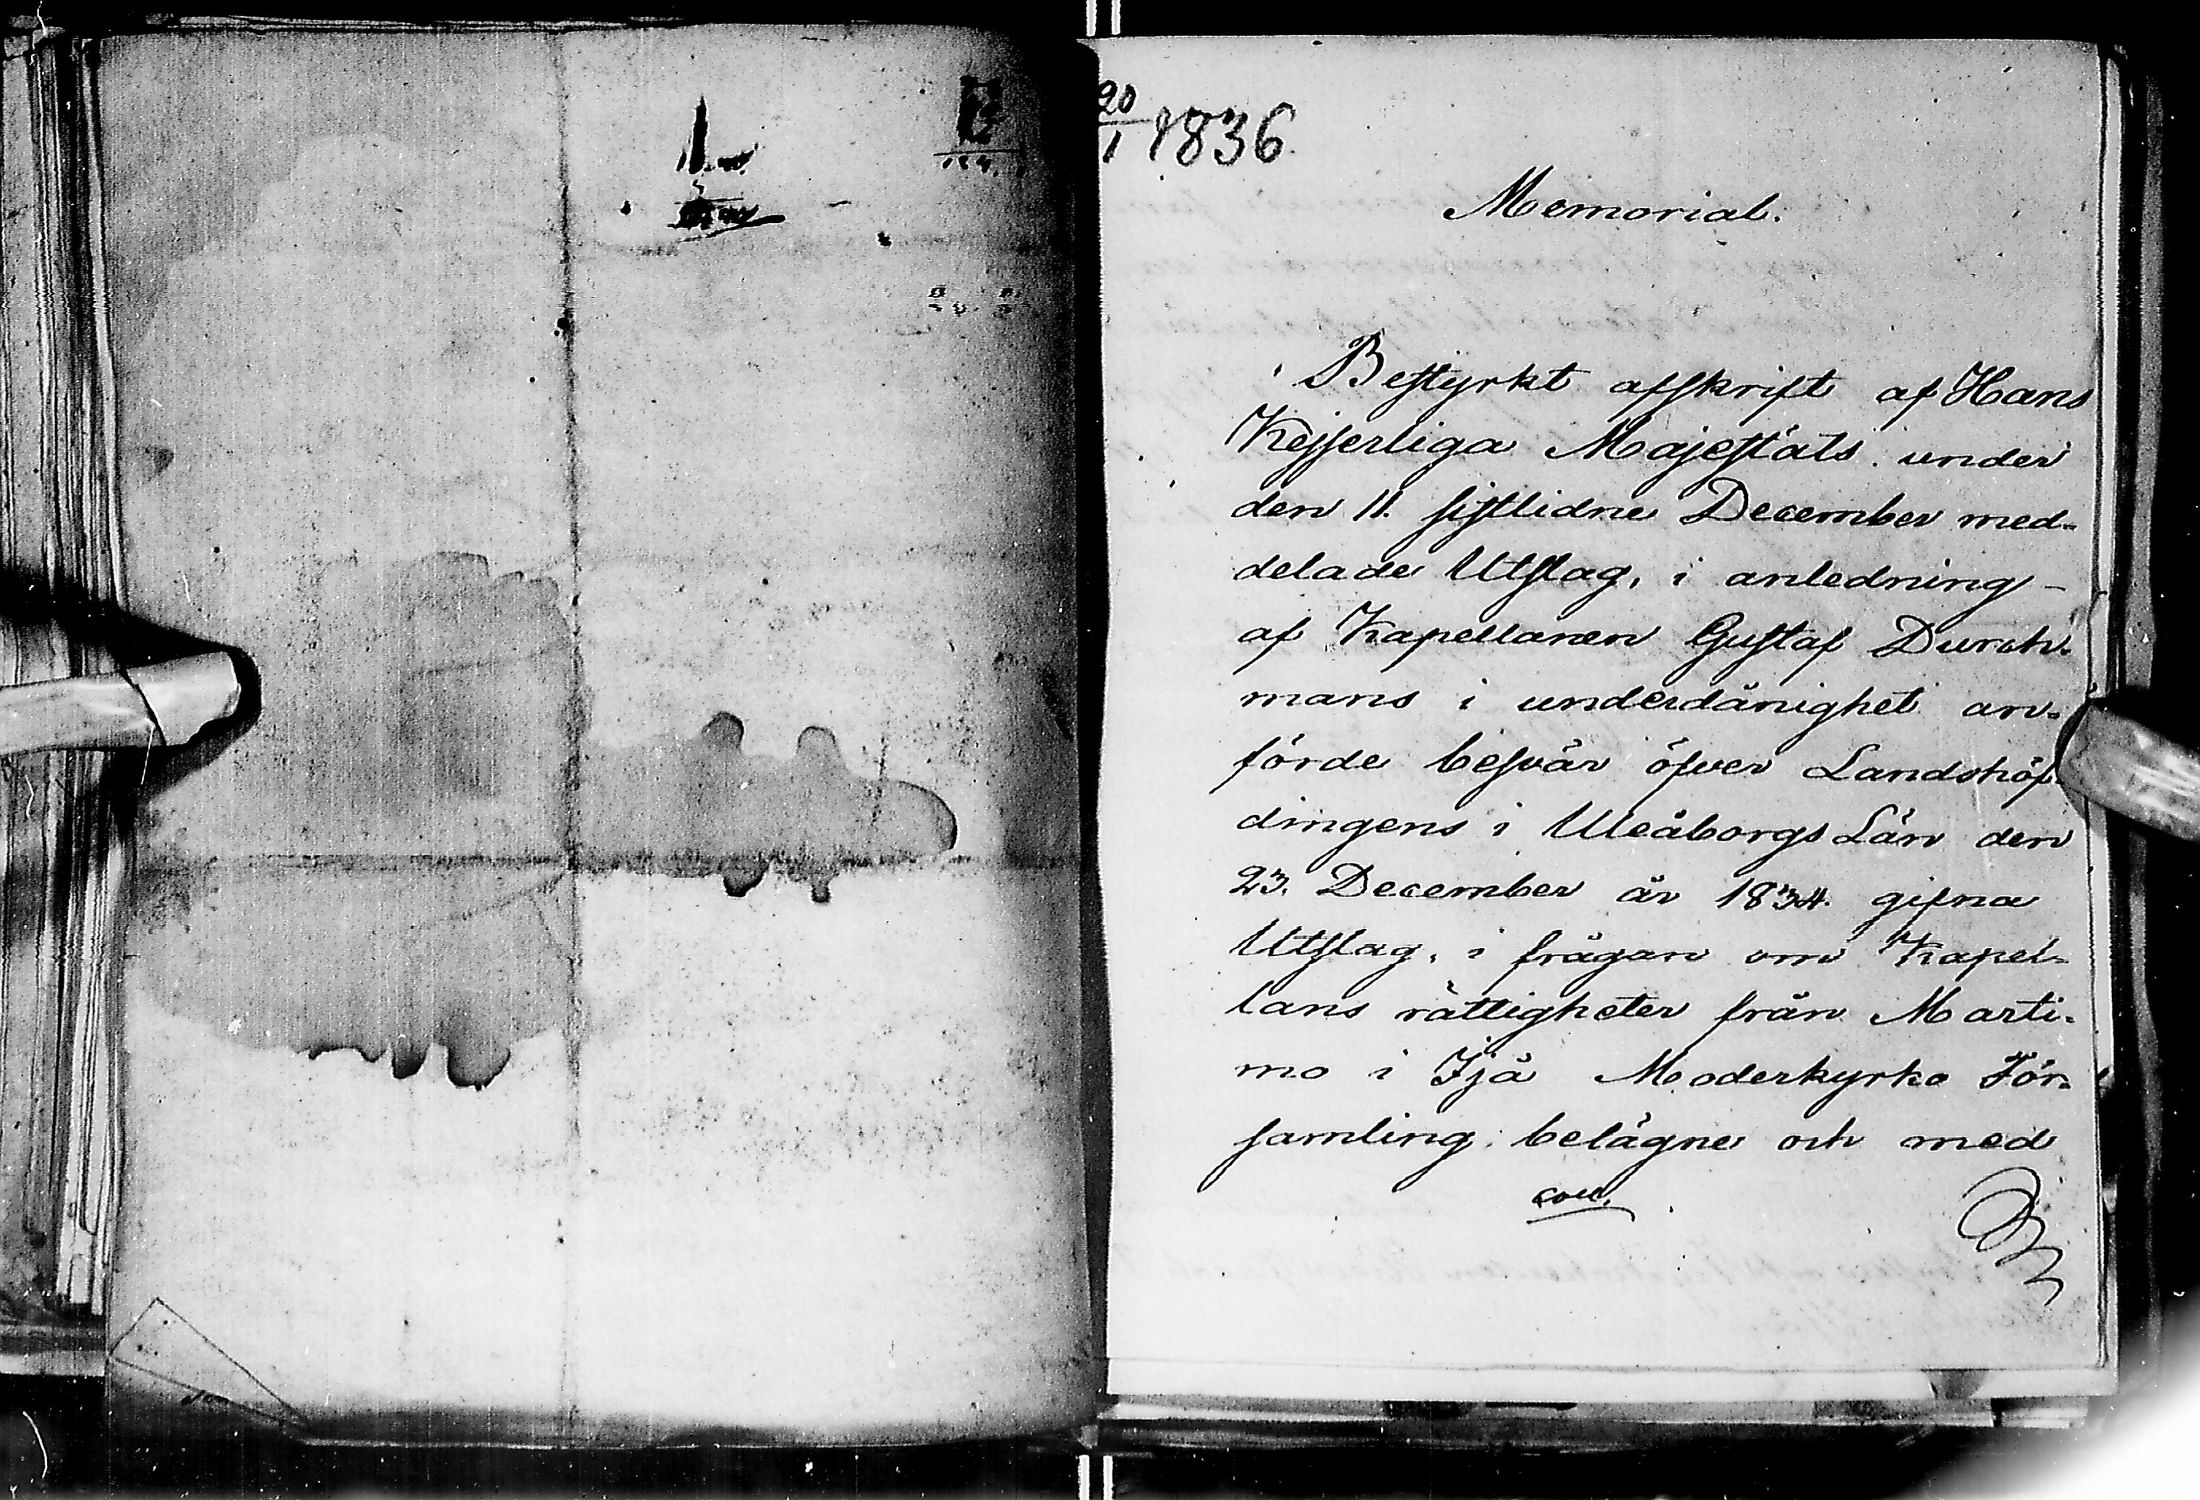 20/1 1836.
Memorial.
Bestyrkt afskrift af Hans
Kejserliga Majestäts under
den 11. sistlidne December med-
delade Utslag, i anledning
af Kapellanen Gustaf Durch-
mans i underdånighet an-
förde besvär öfver Landshöf-
dingens i Uleåborgs Län den
23. December år 1834. gifna
Utslag, i frågan om Kapel-
lans rättigheter från Marti-
mo i Ijå Moderkyrko För-
samling belägne och med
coll.